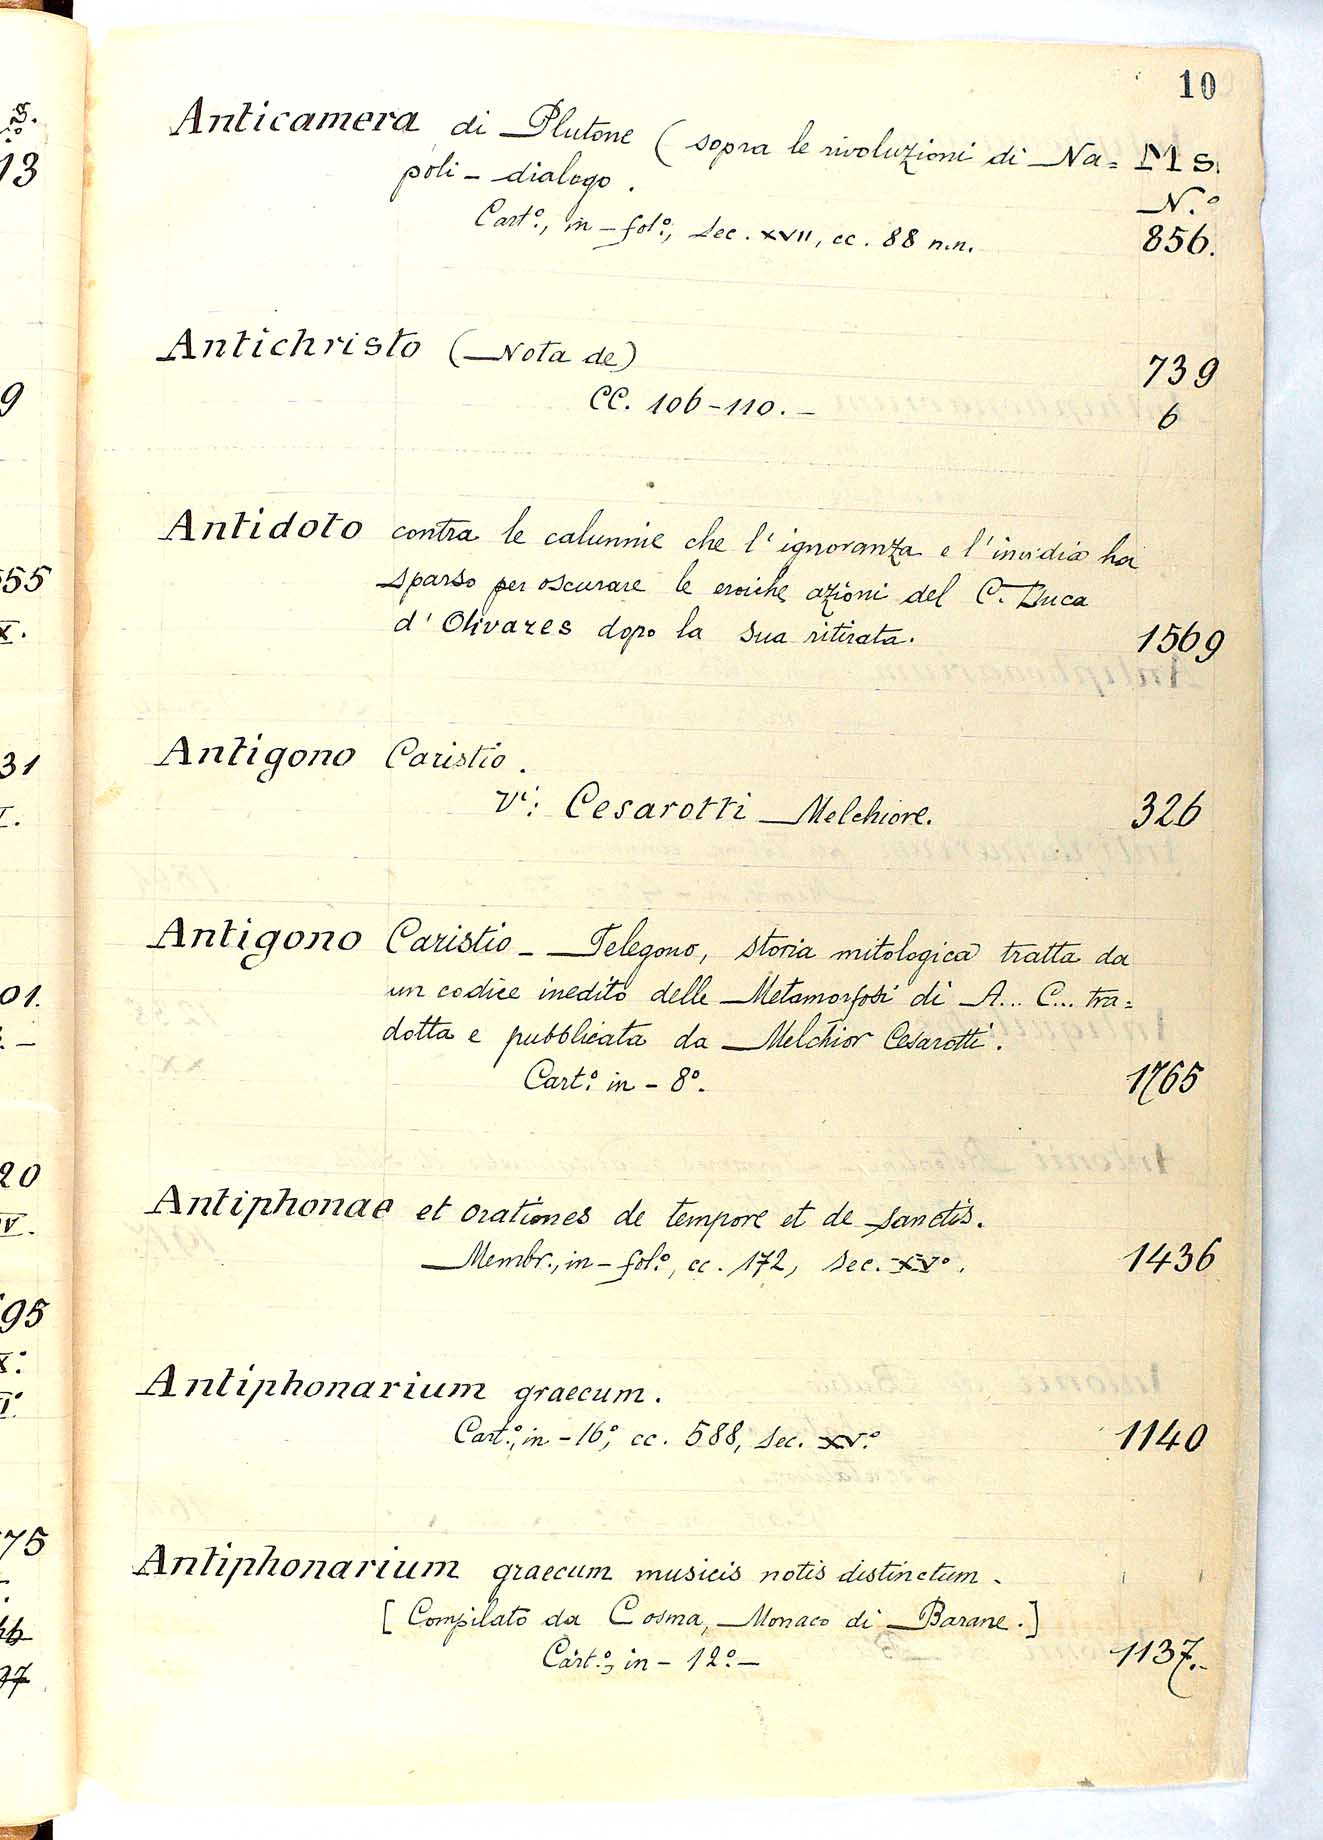 10
Anticamera di Plutone (sopra le rivoluzioni di Na= Ms.
poli - dialogo. N.º
Cart.º, in-fol.º, sec. XVII, cc. 88 n.n. 856.
Antichristo (Nota de) 739
CC. 106-110.- 6
Antidoto contra le calunnie che l'ignoranza e l'invidia ha
sparso per oscurare le eroiche azioni del C. Duca
d'Olivares dopo la sua ritirata. 1569
Antigono Caristio.
Vi: Cesarotti Melchiore. 326
Antigono Caristio - Telegono, storia mitologica tratta da
un codice inedito delle Metamorfosi di A... C... tra=
dotta e pubblicata da Melchior Cesarotti.
Cart.º in-8º. 1765
Antiphonae et orationes de tempore et de sanctis.
Membr., in-fol.º, cc. 172, sec. XVº. 1436
Antiphonarium graecum.
Cart.º, in-16º, cc. 588, sec. XV.º 1140
Antiphonarium graecum musicis notis distinctum.
[Compilato da Cosma, Monaco di Barane.]
Cart.º, in-12º.- 1137.-
13
9
55
X.
31
I.
01.
20
V.
95
X.º
I.
75
37